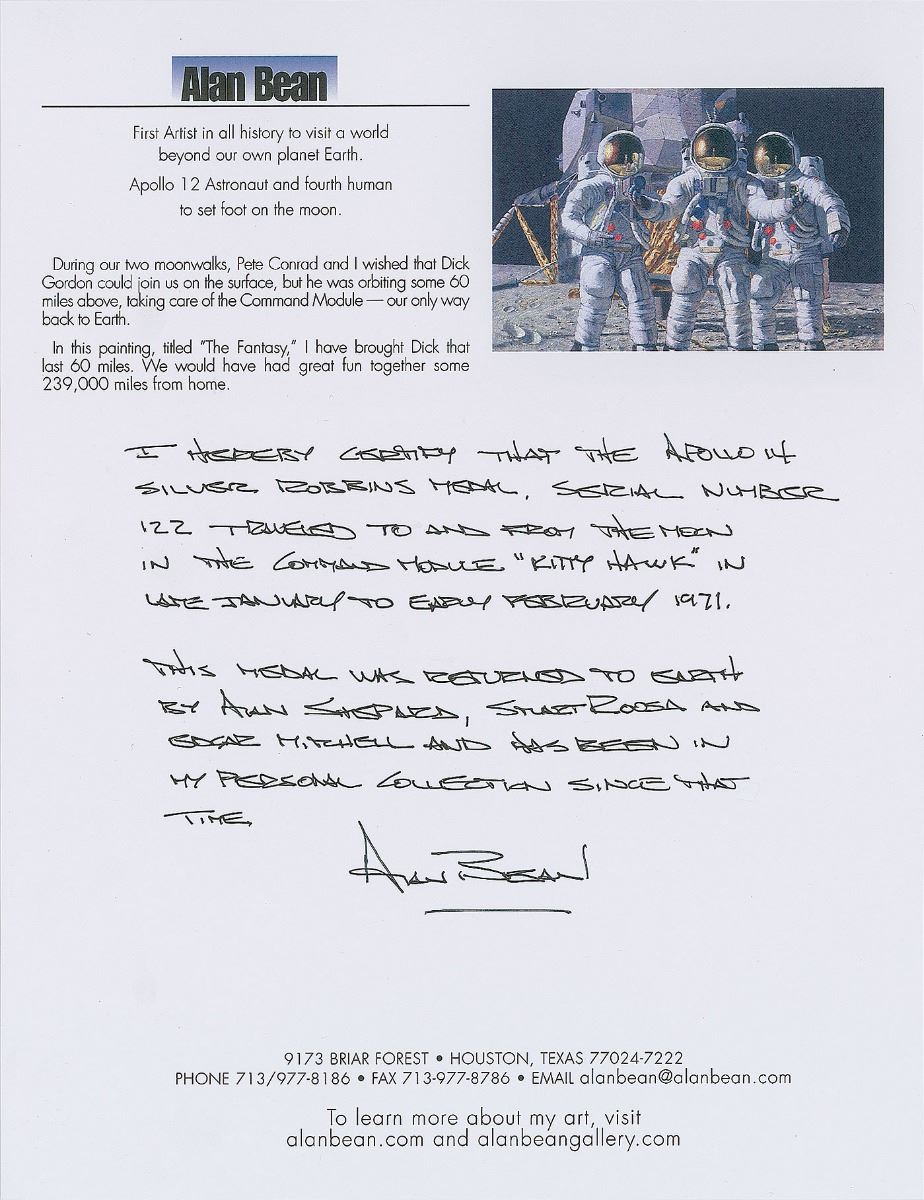 Alan Bean
First Artist in all history to visit a world
beyond our own planet Earth.
Apollo 12 Astronaut and fourth human
to set foot on the moon.
During our two moonwalks, Pete Conrad and I wished that Dick
Gordon could join us on the surface, but he was orbiting some 60
miles above, taking care of the Command Module — our only way
back to Earth.
In this painting, titled "The Fantasy," I have brought Dick that
last 60 miles. We would have had great fun together some
239,000 miles from home.
I HEREBY CERTIFY THAT THE APOLLO 14
SILVER ROBBINS MEDAL, SERIAL NUMBER
122 TRAVELED TO AND FROM THE MOON
IN THE COMMAND MODULE "KITTY HAWK" IN
LATE JANUARY TO EARLY FEBRUARY 1971.
THIS MEDAL WAS RETURNED TO EARTH
BY ALAN SHEPARD, STUART ROOSA AND
EDGAR MITCHELL AND HAS BEEN IN
MY PERSONAL COLLECTION SINCE THAT
TIME.
ALAN BEAN
9173 BRIAR FOREST • HOUSTON, TEXAS 77024-7222
PHONE 713/977-8186 • FAX 713-977-8786 • EMAIL alanbean@alanbean.com
To learn more about my art, visit
alanbean.com and alanbeangallery.com